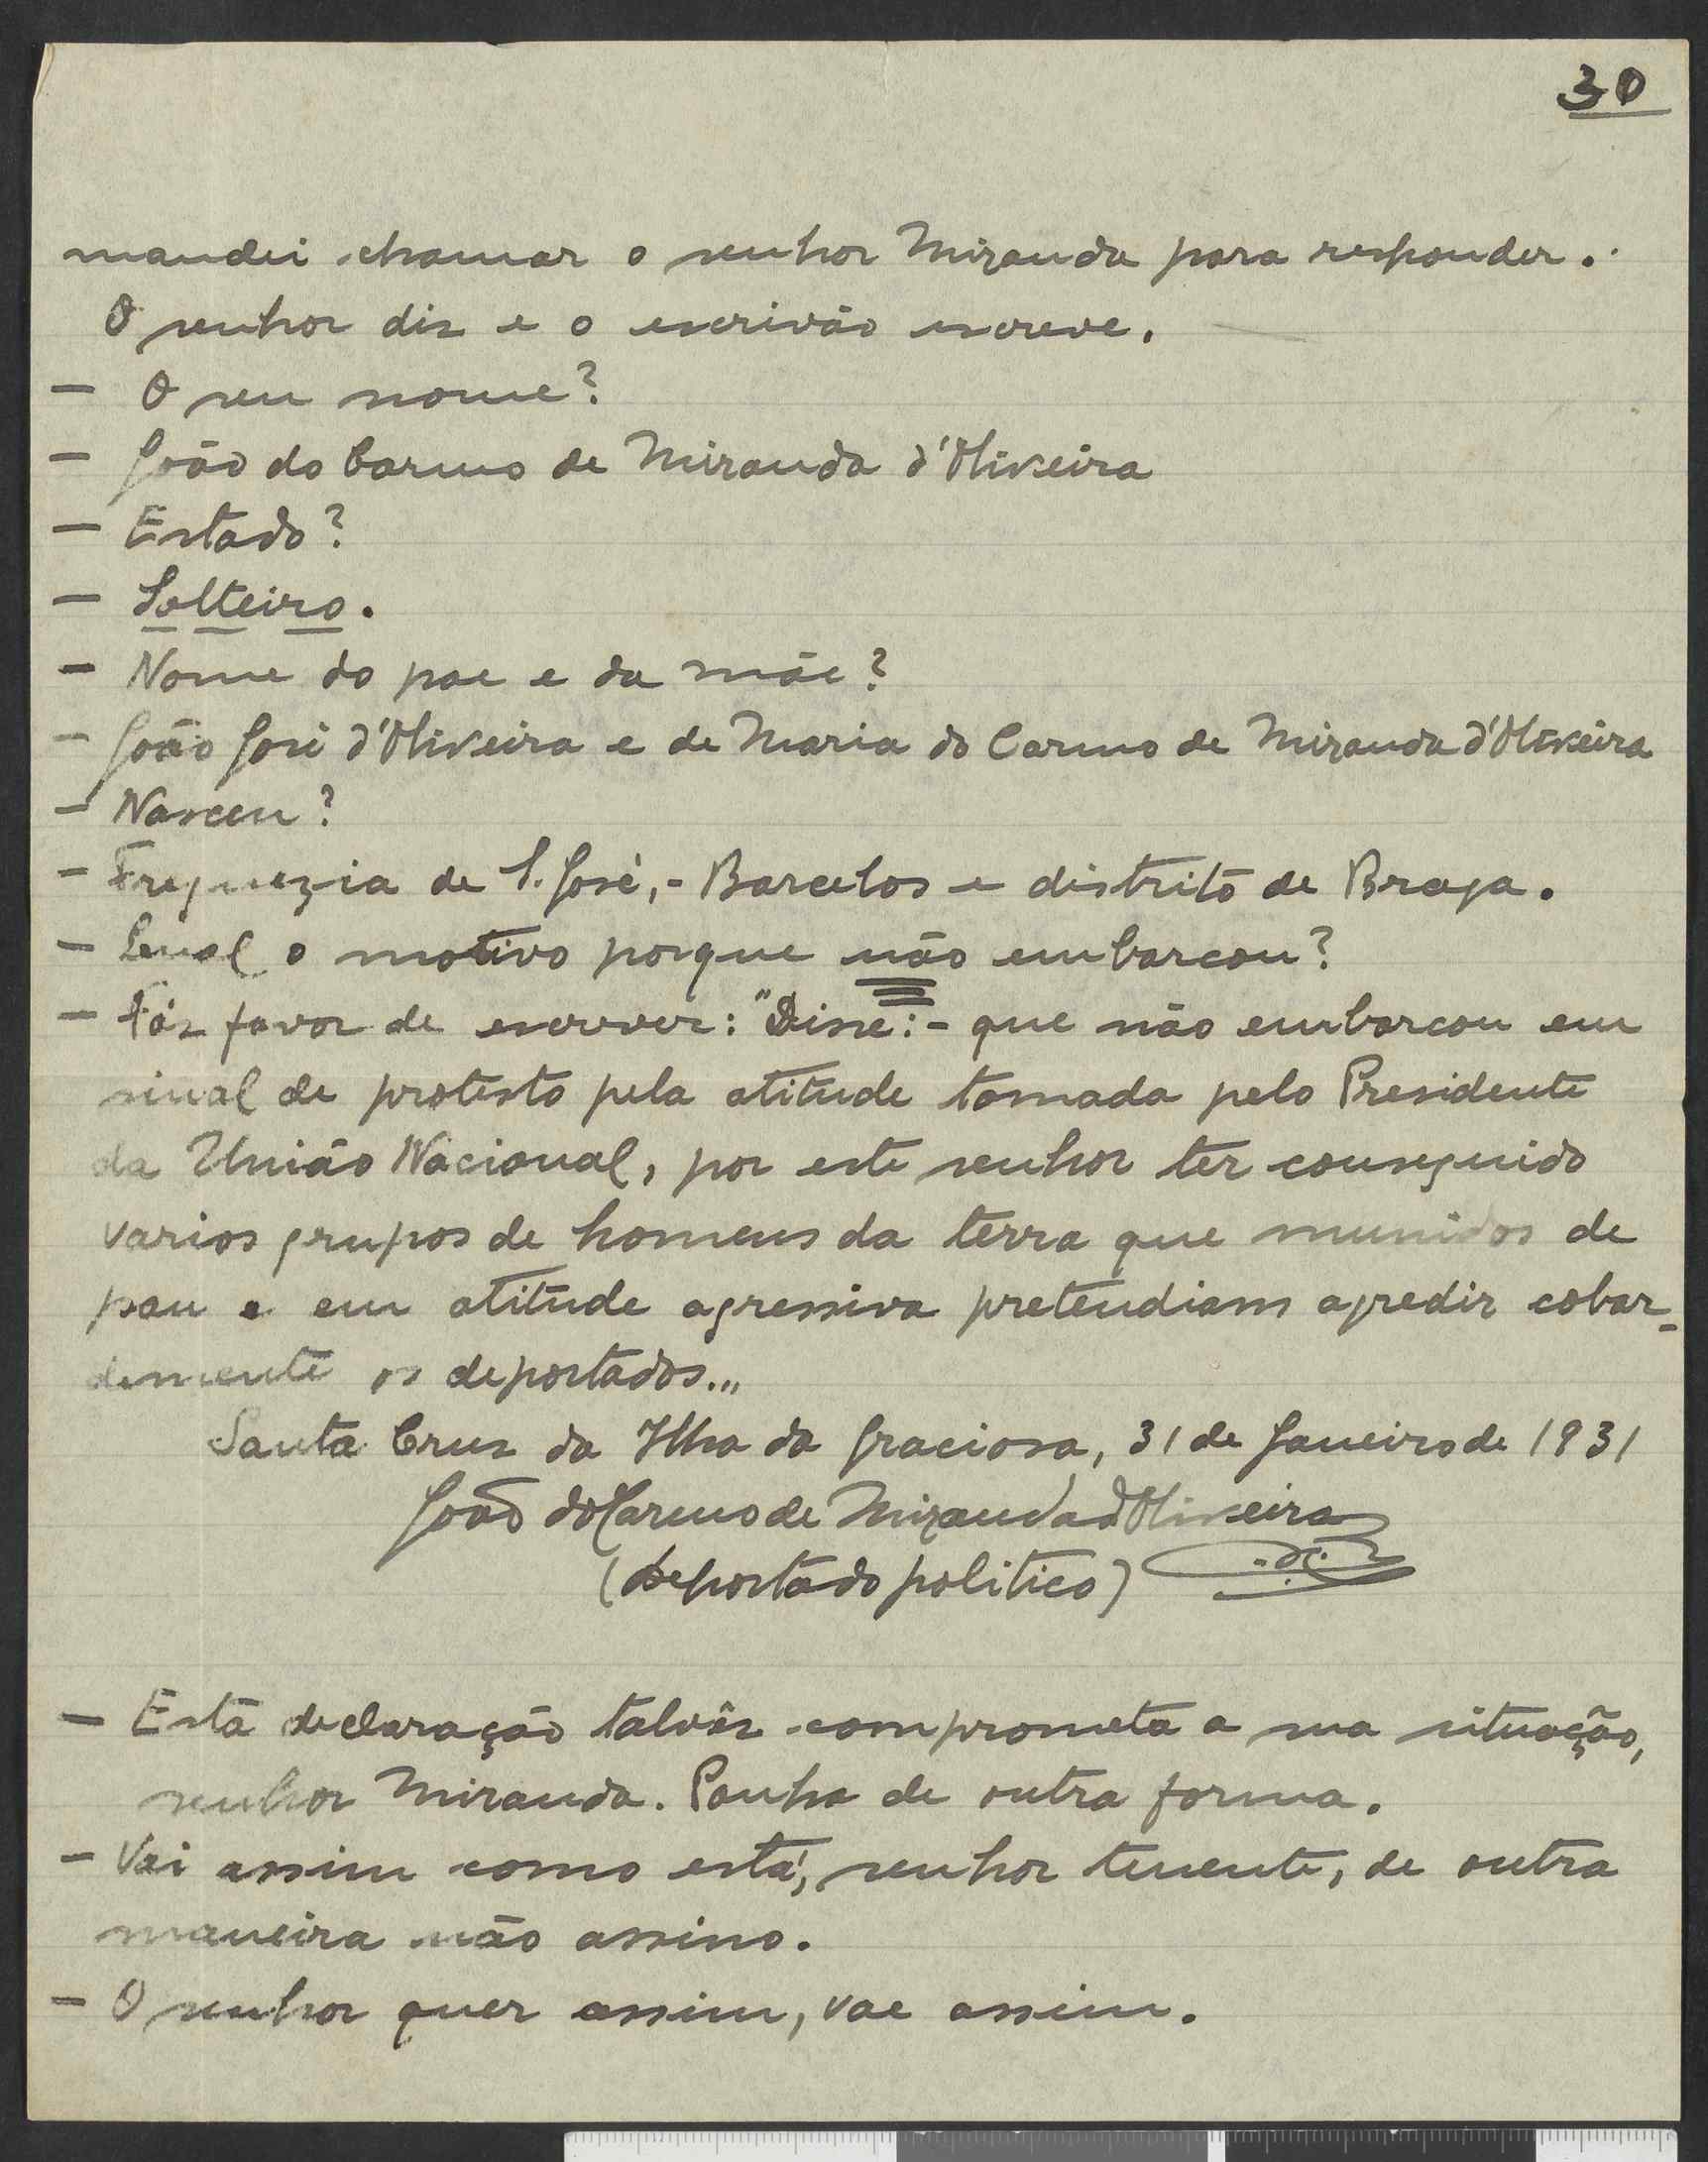 30
mandei chamar o senhor Miranda para responder.
O senhor dis e o escrivão escreve.
— O seu nome?
— João do Carmo de Miranda d'Oliveira
— Estado?
— Solteiro.
— Nome do pae e da mãe?
— João José d'Oliveira e de Maria do Carmo de Miranda d'Oliveira
— Nasceu?
— Freguezia de S. José, - Barcelos e distrito de Braga.
— Qual o motivo porque não embarcou?
— Fás favor de escrever: "Disse: - que não embarcou em
sinal de protesto pela atitude tomada pelo Presidente
da União Nacional, por este senhor ter conseguido
varios grupos de homens da terra que munidos de
pau e em atitude agressiva pretendiam agredir cobar-
demente os deportados...
Santa Cruz da Ilha da Graciosa, 31 de Janeiro de 1931
João do Carmo de Miranda d'Oliveira
(deportado politico)
— Esta declaração talvês comprometa a sua situação,
senhor Miranda. Ponha de outra forma.
— Vai assim como está, senhor tenente, de outra
maneira não assino.
— O senhor quer assim, vae assim.